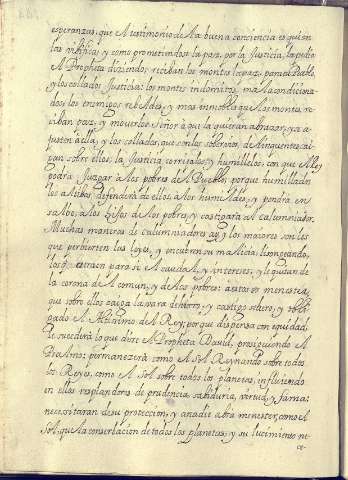 esperanzas, que el testimonio de la buena conciencia es quien
las vivifica; y como prometiendose la paz, por la Justicia, la pedia
el Propheta diziendo; reciban los montes la paz, para el Pueblo,
y los collados Justicia: los montes indomitos, mal acondiciona-
dos; los enemigos rebeldes, y mas inmobles que los montes re-
ciban paz, y muevalos el Señor à que la quieran abrazar, y a a-
justen à ella; y los collados, que son los sobervios, delinquentes cai-
gan sobre ellos, la Justicia corrijalos, y humillelos: con que el Rey
podrà Juzgar à los pobres del Pueblo; porque humillados
los altibos, defenderà de ellos à los humildes, y pondrà en
salbo, à los hijos de los pobres, y castigarà al calumniador.
Muchas maneras de calumniadores ay, y los maiores son los
que perbierten las leyes, y encubren su malicia, lisongeando,
los que atraen para si el caudal, y intereses, y le quitan de
la corona de el comun, y de los pobres: a estos es menester,
que sobre ellos caiga la vara de hierro, y castigo severo, y
el animo de el Rey, porque dispensa con equidad,
le sucederà lo que dize el Propheta David, prosiguiendo el
Psalmo: permanezerà como el Sol Reynando sobre todos
los Reyes, como el Sol sobre todos los planetas, influiendo
en ellos resplandores de prudencia, sabiduria, virtud, y fama:
necesitaran de su proteccion, y anadie abra menester, como el
Sol, que la conserbacion de todos los planetas, y su lucimiento ne-
ce-